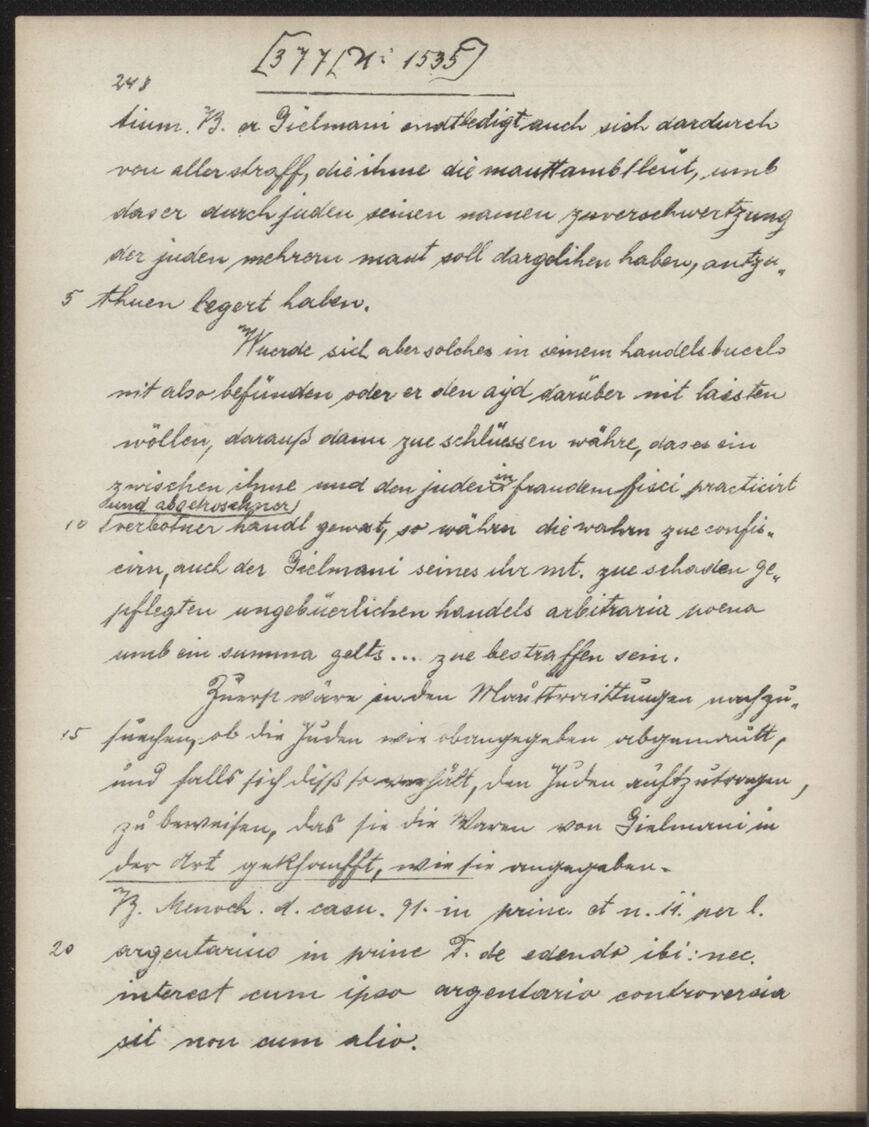 [377[N: 1535]
248
tium. B. er Gielmani endtledigt auch sich dardurch
von aller straff, die ihme die mauttambtleüt, umb
das er durch juden seinen namen zuverschwertzung
der juden mehrern maut soll dargelihen haben, antzu„
5 thuen legert haben.
Wuerde sich aber solches in seinem handelsbuech
nit also befünden oder er den ayd darüber nit laissten
wöllen, darauß dann zue schlüessen währe, das es ein
zwischen ihme und den juden in fraudem fisci practicirt
und abgedroschner
10 verbotner handl gewest, so währn die wahrn zue confis„
cirn, auch der Gielmani seines ihr mt. zue schaden ge„
pflegten ungebüerlichen handels arbitraria poena
umb ein summa gelts... zue bestraffen sein.
Zuerst wäre in den Mauttraittungen nachzu„
15 suechen, ob die Juden wie obangegeben abgemautt,
und falls sich diß so verhält, den Juden aufzutragen,
zu beweisen, das sie die Waren von Gielmani in
der Art gekhaufft, wie sie angegeben.
B. Menoch. d. casu. 91. in princ. et n. 11. per l.
20 argentarius in princ T. de edendo ibi: nec.
interest cum ipso argentario controversia
sit non cum alio.